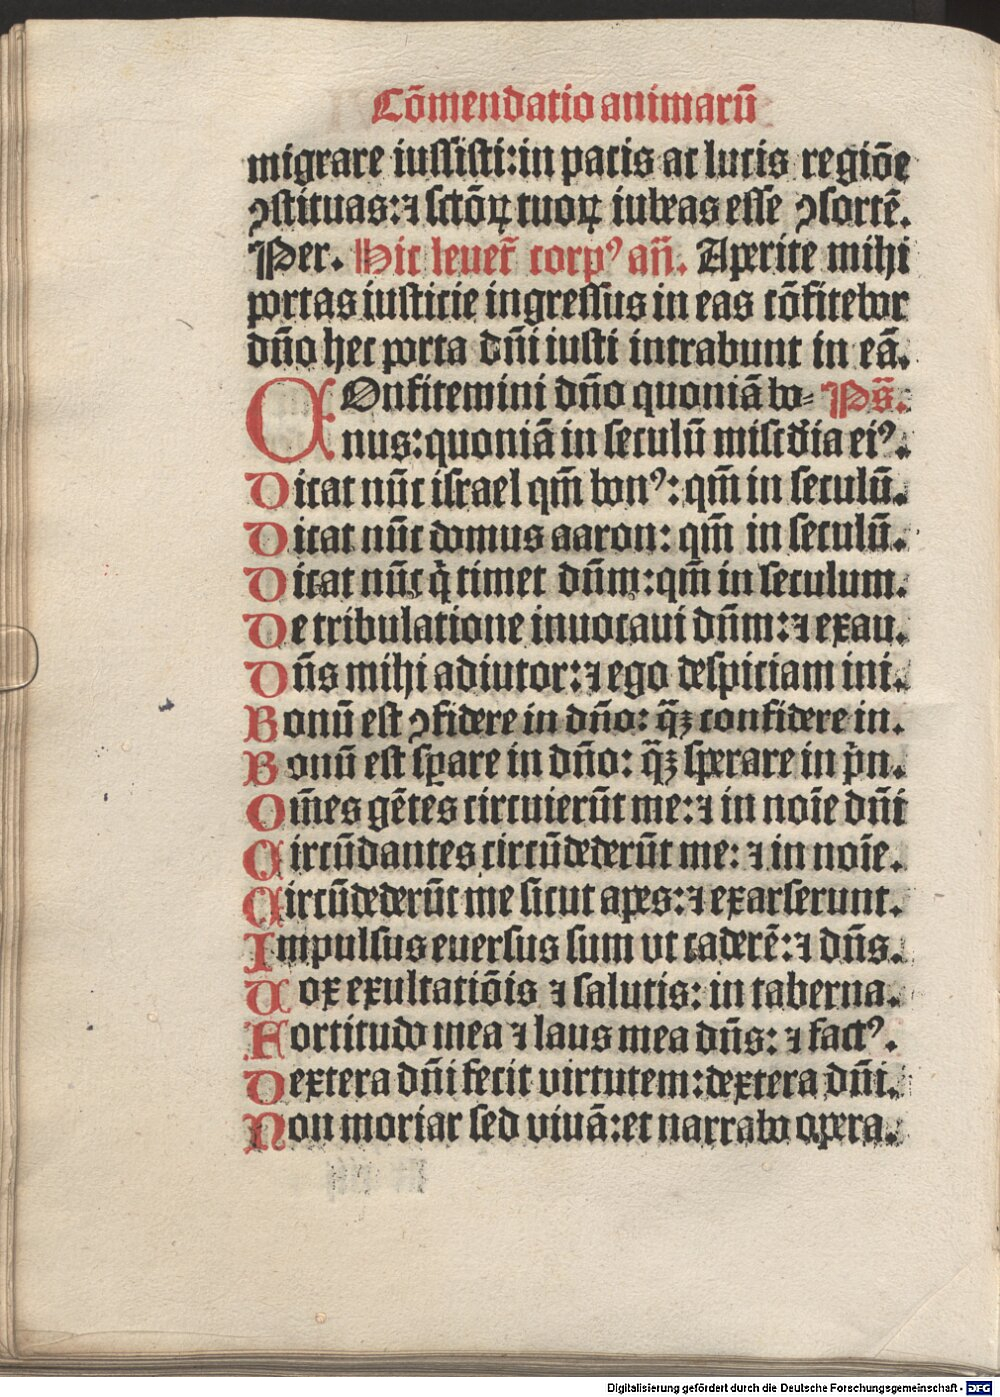 Cōmendatio animarū
migrare iussisti:in pacis ac lucis regiōe
ꝯstituas:⁊ sctōꝝ tuoꝝ iubeas esse ꝯsortē.
Per. Hic leuet̄ corpꝰ an̄. Aperite mihi
portas iusticie ingressus in eas cōfitebor
dn̄o hec porta dn̄i iusti intrabunt in eā.
COnfitemini dn̄o quoniā bo= Ps̄.
nus:quoniā in seculū misc̄dia eiꝰ.
Dicat nūc israel qm̄ bonꝰ:qm̄ in seculū.
Dicat nūc domus aaron: qm̄ in seculū.
Dicat nūc q̇ timet dūm:qm̄ in seculum.
De tribulatione inuocaui dūm:⁊ exau.
Dn̄s mihi adiutor:⁊ ego despiciam ini.
Bonū est ꝯfidere in dn̄o: q̄ꝫ confidere in.
Bonū est sꝑare in dn̄o: q̄ꝫ sperare in ṗn.
Om̄es gētes circuierūt me:⁊ in noīe dn̄i
Circūdantes circūdederūt me: ⁊ in noīe.
Circūdederūt me sicut apes:⁊ exarserunt.
Impulsus euersus sum vt caderē:⁊ dn̄s.
Vox exultatiōis ⁊ salutis: in taberna.
Fortitudo mea ⁊ laus mea dn̄s: ⁊ factꝰ.
Dextera dn̄i fecit virtutem:dextera dn̄i.
Non moriar sed viuā:et narrabo opera.
Digitalisierung gefördert durch die Deutsche Forschungsgemeinschaft - DFG